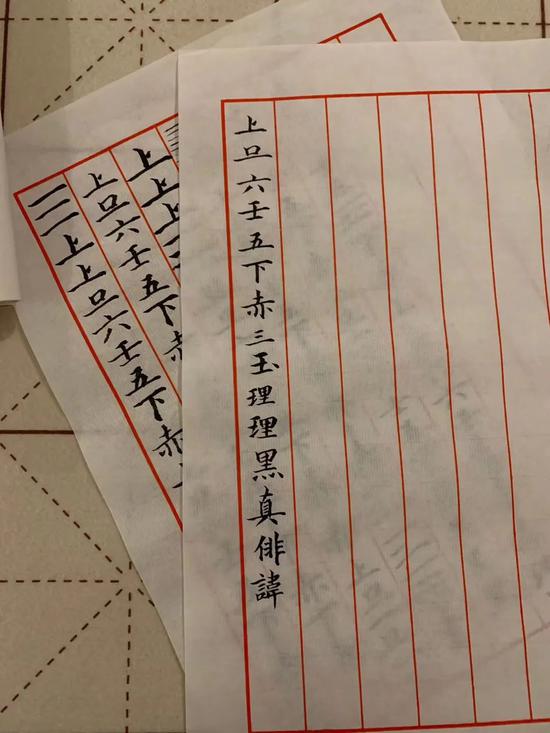 上旦六壬五下赤三玉理理黑真俳諱
上上上
上旦六壬五下赤
上上旦六壬五下赤